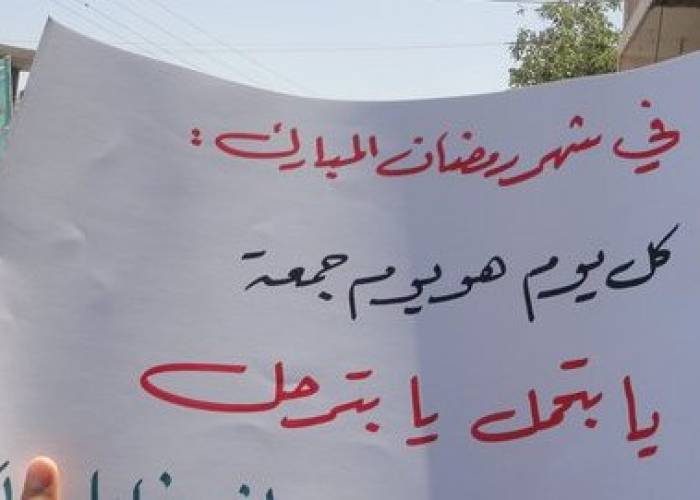 في شهر رمضان المبارك :
كل يوم هو يوم جمعة
يا بتحل يا بترحل